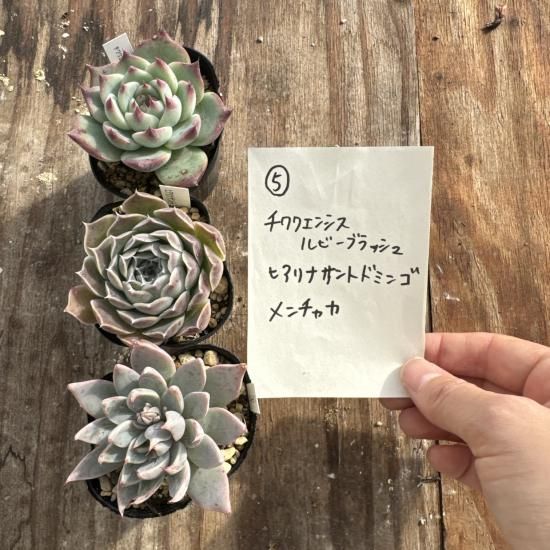 ⑤
チワワエンシス
ルビーブラッシュ
ヒアリナサントドミンゴ
メンチャカ